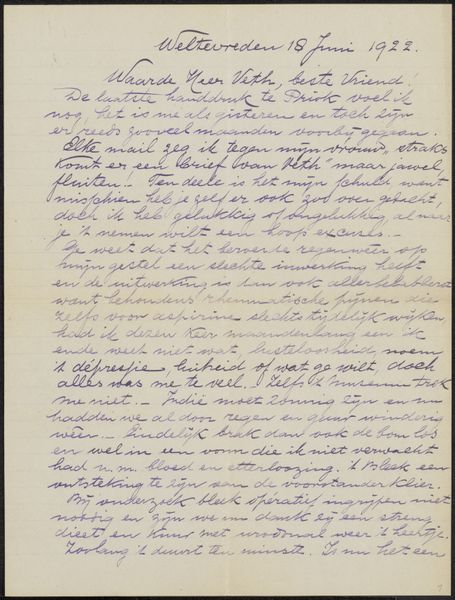 Weltevreden 18 Juni 1922.
Waarde Heer Veth, beste Vriend!
De laatste handdruk te Priok voel ik
nog, het is me als gisteren en toch zijn
er reeds zooveel maanden voorbij gegaan.
Elke mail zeg ik tegen mijn vrouw, straks
komt er een brief van Veth" maar jawel,
fluiten! Ten deele is het mijn schuld want
misschien heb je zelf er ook zoo over gedacht,
doch ik heb gelukkig of ongelukkig, al naar
je 't nemen wilt een hoop excuses.-
Ge weet dat het beroerde regenweer op
mijn gestel een slechte inwerking heeft
en de uitwerking is dan ook allerbelabberst
want behoudens rheumatische pijnen die
zelfs voor aspirine slechts tijdelijk wijken
had ik dezen keer maandenlang een ik
en de weet niet wat, lusteloosheid, noem
't dépressie, luiheid of wat ge wilt, doch
alles was me te veel. Zelfs 't museum trok
me niet. - Indië moet zonnig zijn en nu
hadden we al door regen en guur winderig
wêer. - Eindelijk brak dan ook de bom los
en wel in een vorm die ik niet verwacht
had n.m. bloed en etterloozing. 't Bleek een
ontsteking te zijn van de voorstander klier.
Bij onderzoek bleek opératief ingrijpen niet
noodig en zijn we nu dank zij een streng
dieet en kuur met urodonal weer 't heertje.
Zoolang 't duurt ten minste. Is nu het een